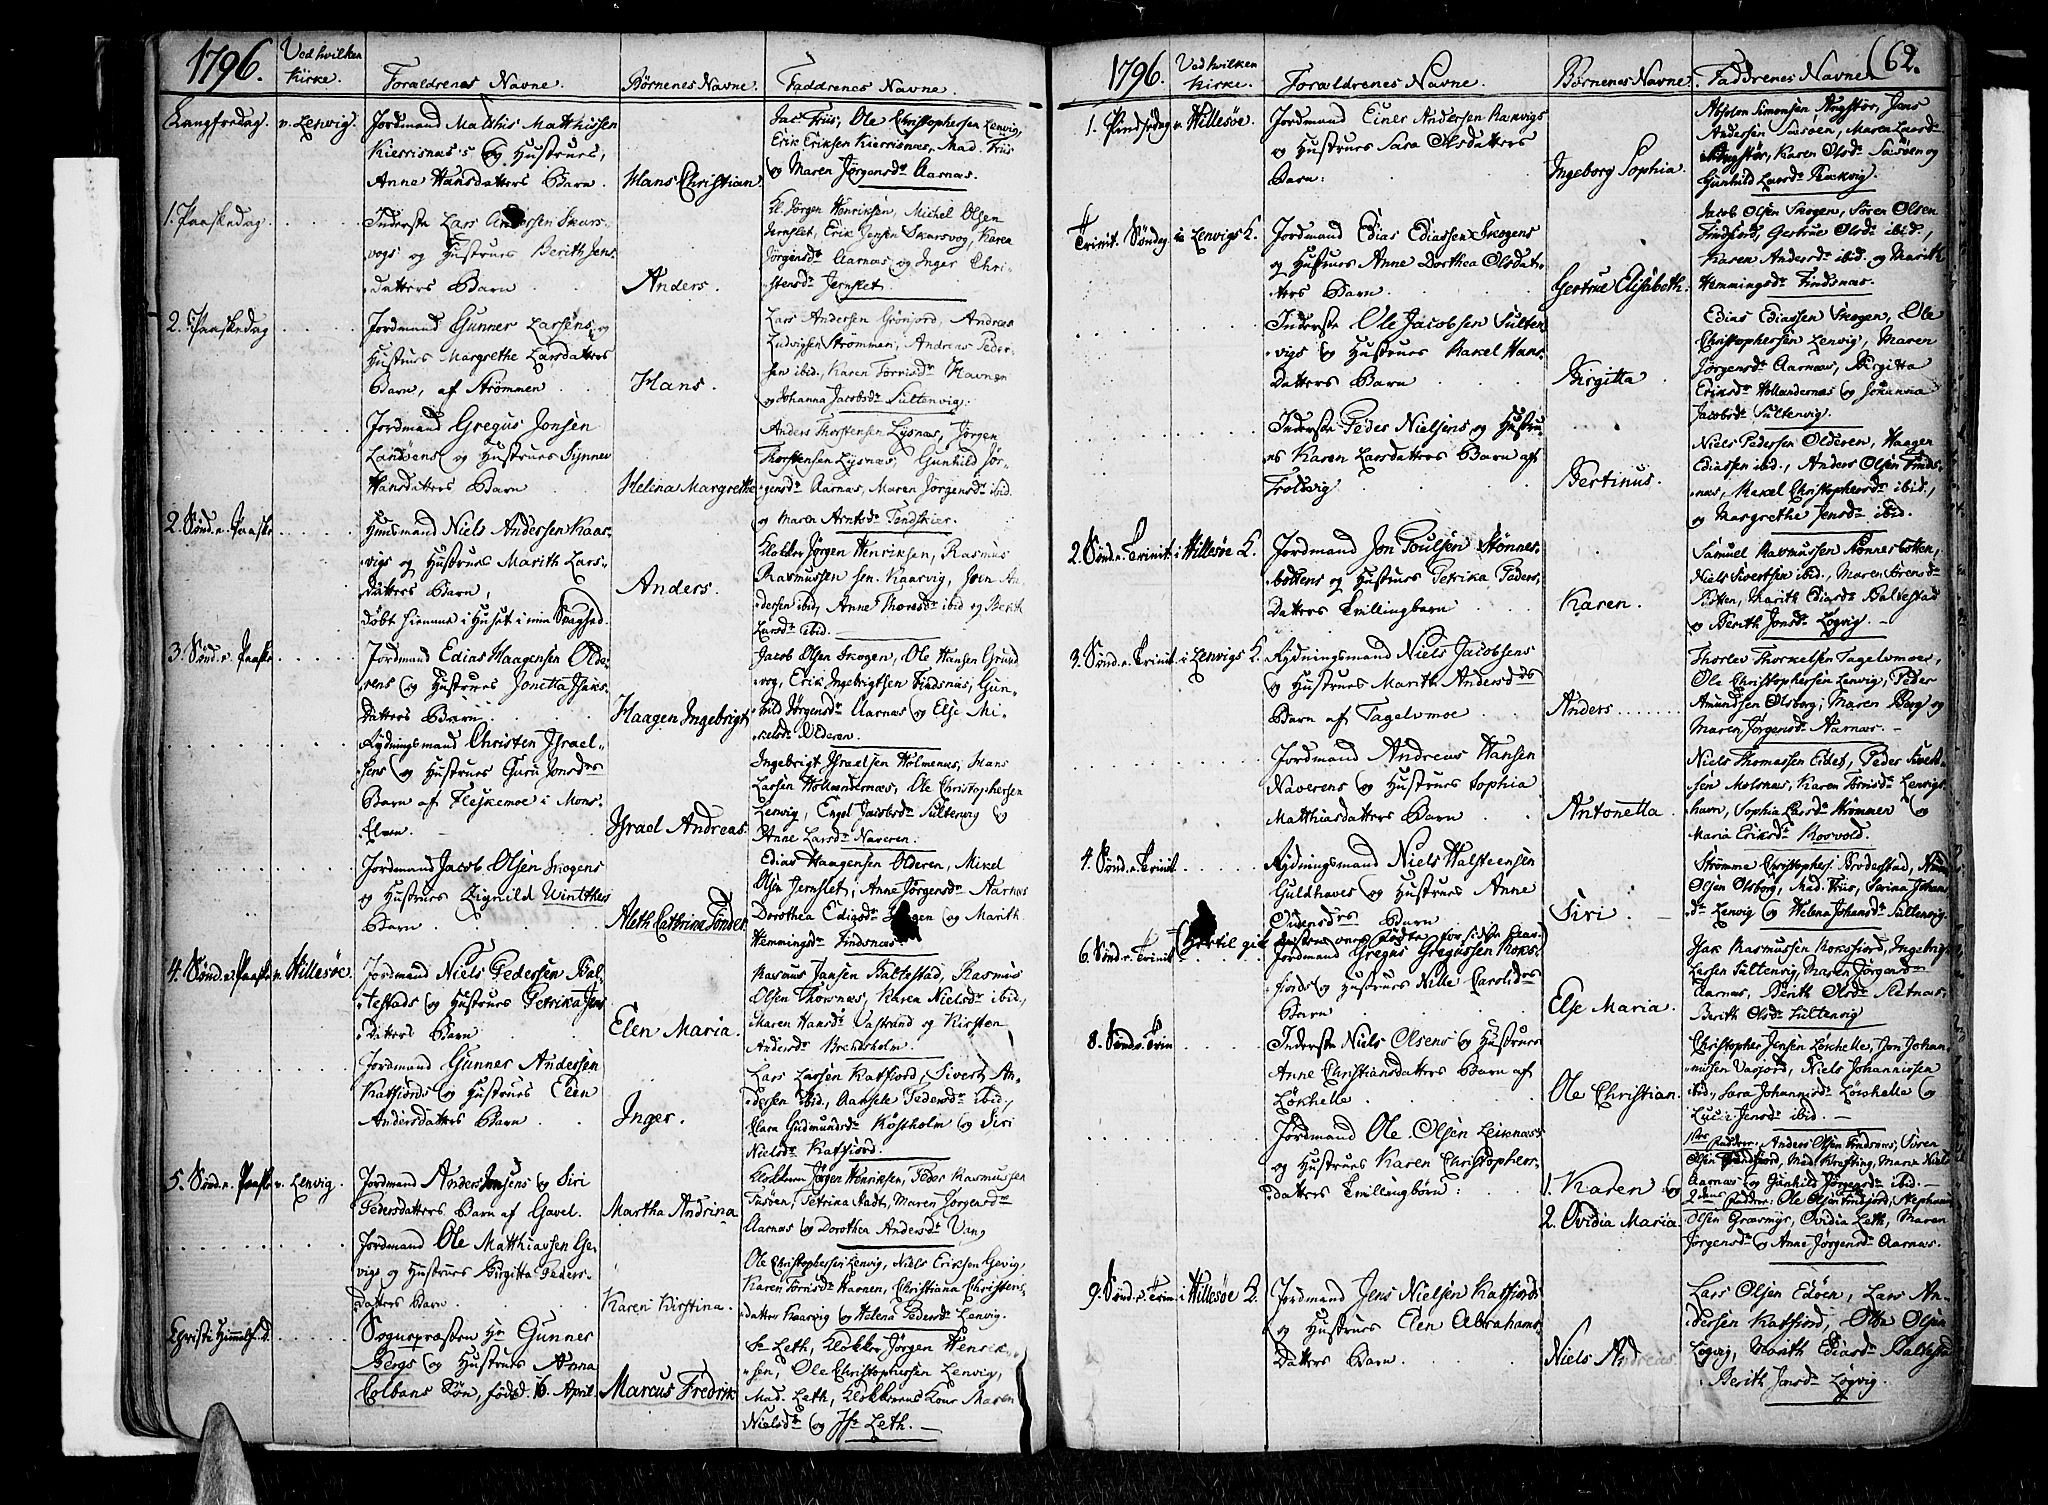 1796.
Ved hvilken
Kirke.
Forældrenes Navne.
Børnenes Navne.
Faddrenes Navne.
Langfredag
v. Lenvig.
Jordmand Mathis Matthissen
Kierrisnæs's og Hustrues,
Anne Hansdatters Barn.
Hans Christian
Jac Friis, Ole Christophersen Lenvig,
Erik Eriksen Kierrisnæs, Mad. Friis
og Maren Jørgensdr Aarnæs.
1. Paaskedag
Inderste Lars Andersen Skars-
vogs og Hustrues Berith Jens-
datters Barn
Anders.
Kl. Jørgen Henriksen, Michel Olsen
Jernslet, Erik Jensen Skarsvog, Karen
Jørgensdr Aarnæs og Inger Chri-
stensdr Jernslet.
2. Paaskedag
Jordmand Gunner Larsens og
Hustrues Margrethe Larsdatters
Barn, af Strømmen
Hans.
Lars Andersen Grønjord, Andreas
Ludvigsen Strømmen, Andreas Peder-
sen ibid., Karen Torrisdr Havnen
og Johanna Jacobsdr Sultenvig.
Jordmand Gregus Jonsen
Landøens og Hustrues Synnev
Hansdatters Barn
Helina Margrethe
Anders Thorstensen Lysnæs, Jørgen
Thorstensen Lysnæs, Gunhild Jør-
gensdr Aarnæs, Maren Jørgensdr ibid.
og Maren Arntsdr Tendskier.
2. Sønd. e. Paaske
Huusmand Niels Andersen Kaar-
vigs og Hustrues Marith Lars-
datters Barn,
døbt hiemme i Huset i min Svaghed.
Anders.
Klokker Jørgen Henriksen, Rasmus
Rasmussen sen. Kaarvig, Joen An-
dersen ibid, Anne Thomsdr ibid og Berith
Larsdr ibid.
3. Sønd. e. Paaske
Jordmand Edias Haagensen Olde-
rens og Hustrues Jonetta Isaks-
datters Barn
Haagen Ingebrigt
Jacob Olsen Skogen, Ole Hansen Grund
vog, Erik Ingebrigtsen Findsnæs, Gun-
hild Jørgensdr Aarnæs og Else Mi-
kelsdr Olderen.
Rydningsmand Christen Israel-
sens og Hustrues Guru Jonsdrs
Barn af Fleskemoe i Mons-
Elven.
Israel Andreas.
Ingebrigt Israelsen Holmenes, Hans
Larsen Hollændernæs, Ole Christophersen
Lenvig, Engel Jacobsdr Sultenvig og
Anne Larsdr Naveren.
Jordmand Jacob Olsen Skogens
og Hustrues Zignild Winthers
Barn
Aleth Cathrina Tønder
Edias Haagensen Olderen, Mikel
Olsen Jernslet, Anne Jørgensdr Aarnæs
Dorothea Ediasdr Skogen og Marith
Hemmingsdr Findsnæs
4. Sønd. e. Paaske
v. Hillesøe
Jordmand Niels Pedersen Bal-
testads og Hustrues Petrika Jens
datters Barn
Elen Maria.
Rasmus Jansen Baltestad, Rasmus
Olsen Thorsnæs, Karen Nielsdr ibid.,
Maren Hansdr Vastrand og Kirsten
Andersdr Brendsholm.
Jordmand Gunner Andersen
Katfiords og Hustrues Elen
Andersdatters Barn
Inger.
Lars Larsen Katfiord, Sivert An-
dersen ibid, Aansele Pedersdr ibid.,
Clara Gudmundsdr Kobholm og Siri
Nielsdr Katfiord.
5. Sønd. e. Paaske
v. Lenvig.
Jordmand Anders Jensens og Siri
Pedersdatters Barn af Gavel.
Martha Andrina
Klokkeren Jørgen Henriksen, Peder Rasmussen
Tusøen, Petrika Stadt, Maren Jørgensdr
Aarnæs og Dorothea Andersdr Vang
Jordmand Ole Matthiassen Ge-
vigs og Hustrues Birgitta Peders-
datters Barn.
Karen Kirstina.
Ole Christophersen Lenvig, Niels Eriksen Gevig,
Karen Torrisdr Havnen, Christiana Christens-
datter Kaarvig og Helena Pedersdr Lenvig.
Christi Himmelf. d.
Sognepræsten Hr Gunner
Bergs og Hustrues Anna
Colbans Søn, født d. 16 April.
Marcus Fredrik
Hr Leth, Klokker Jørgen Henrik-
sen, Ole Christophersen Lenvig,
Mad. Leth, Klokkerens Kone Maren
Nielsdr og Jfr Leth.
1796.
Ved hvilken
Kirke.
Forældrenes Navne.
Børnenes Navne.
Faddrenes Navne
(62.
1. Pindsedag
v. Hillesøe.
Jordmand Einer Andersen Rækvigs
og Hustrues Sara Olsdatters
Barn:
Ingeborg Sophia.
Absolon Simonsen Angstør, Jens
Andersen Sasøen, Maren Larsdr
Angstør, Karen Olsdr Sasøen og
Gunhild Larsdr Rækvig.
Trinit. Søndag
v. Lenvigs K.
Jordmand Edias Ediassen Skogens
og Hustrues Anne Dorthea Olsdat-
ters Barn
Gertrue Elisabeth.
Jacob Olsen Skogen, Søren Olsen
Findfiord, Gertrue Olsdr ibid.,
Karen Andersdr ibid. og Marith
Hemmingsdr Findsnæs.
Inderste Ole Jacobsen Sulten-
vigs og Hustrues Rakel Hans-
datters Barn
Birgitta
Edias Ediassen Skogen, Ole
Christophersen Lenvig, Maren
Jørgensdr Aarnæs, Birgitta
Eriksdr Hollændernæs og Johanna
Jacobsdr Sultenvig.
Inderste Peder Nielsens og Hustru-
es Karen Larsdatters Barn af
Troldvig
Bertinus.
Niels Pedersen Olderen, Haagen
Ediassen ibid., Anders Olsen Finds-
næs, Makel Christophersdr ibid.,
og Margrethe Jensdr ibid.
2. Sønd. e. Trinit.
i Hillesøe K.
Jordmand Jon Poulsen Stønnes-
bottens og Hustrues Petrika Peders-
datters Tvillingbarn
Karen.
Samuel Rasmussen Stønnesbotten,
Niels Sivertsen ibid., Maren Sørensdr
Botten, Marith Ediasdr Baltestad
og Berith Jonsdr Løgvig.
3. Sønd. e. Trinit.
i Lenvigs K.
Rydningsmand Niels Jacobsens
og Hustrues Marith Andersdrs
Barn af Tagelvmoe
Anders
Thorlev Thorkelsen Tagelvmoe,
Ole Christophersen Lenvig, Peder
Amundsen Olsborg, Maren Berg og
Maren Jørgensdr Aarnæs.
Jordmand Andreas Hansen
Naverens og Hustrues Sophia
Matthiasdatters Barn
Antonetta.
Niels Thomassen Eidet, Peder Sivert-
sen Molsnæs, Karen Torrisdr Lenvigs-
havn, Sophia Larsdr Strømmen og
Maria Eriksdr Rosvold.
4. Sønd. e. Trinit.
Rydningsmand Niels Halsteensen
Guldhaves og Hustrues Anne
Barn
Siri.
Strømme Christophers. Brodestad,
Olsen Olsborg, Mad. Friis, Serina Johans-
dr Lenvig og Helena Johansdr Sultenvig.
(Hertil gik
6. Sønd. e. Trinit
Jordmand Gregus Gregussen Roks-
fiords og Hustrues Nille Carolidrs
Barn
Else Maria.
Isak Rasmussen Roksfiord, Ingebrigt
Larsen Sultenvig, Maren Jørgensdr
Aarnæs, Berith Olsdr Sletnæs,
Berith Olsdr Sultenvig
8. Sønd. e. Trin
Inderste Niels Olsens og Hustrues
Anne Christiansdatters Barn af
Løkhelle
Ole Christian.
Christopher Jensen Løkhelle, Jon Johan-
nissen Vasjord, Niels Johannissen
ibid., Sara Johannisdr Løkshelle og
Lucie Jensdr ibid.
Jordmand Ole Olsen Leiknæs
og Hustrues Karen Christophers-
datters Tvillingbørn:
1. Karen og
2. Ovidia Maria
1stes Faddere: Anders Olsen Findsnæs, Søren
Olsen Findfiord, Mad. Krafting, Maren Niels
Aarnæs og Gunhild Jørgensdr ibid.
2dens Faddre: Ole Olsen Findfiord, Stephan
Olsen Græsmyr, Ovidia Leth, Maren
Jørgensdr og Anne Jørgensdr Aarnæs.
9. Sønd. e. Trin
i Hillesøe K.
Jordmand Jens Nielsen Katfiords
og Hustrues Elen Abrahams-
datters Barn.
Niels Andreas.
Lars Olsen Edøen, Lars An-
dersen Katfiord, Olsen
Løgvig, Marith Ediasdr Baltestad
Berith Jonsdr Løgvig.